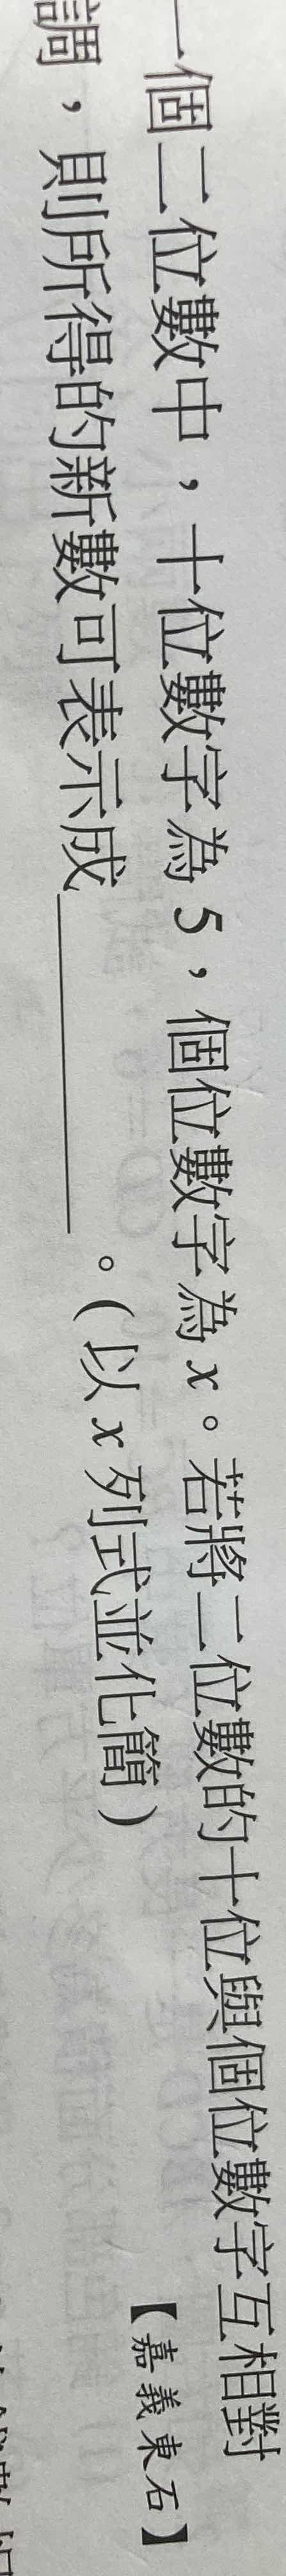 一個二位數中，十位數字為 5，個位數字為 x。若將二位數的十位與個位數字互相對
調，則所得的新數可表示成＿＿＿＿＿＿。(以 x 列式並化簡)
【嘉義東石】